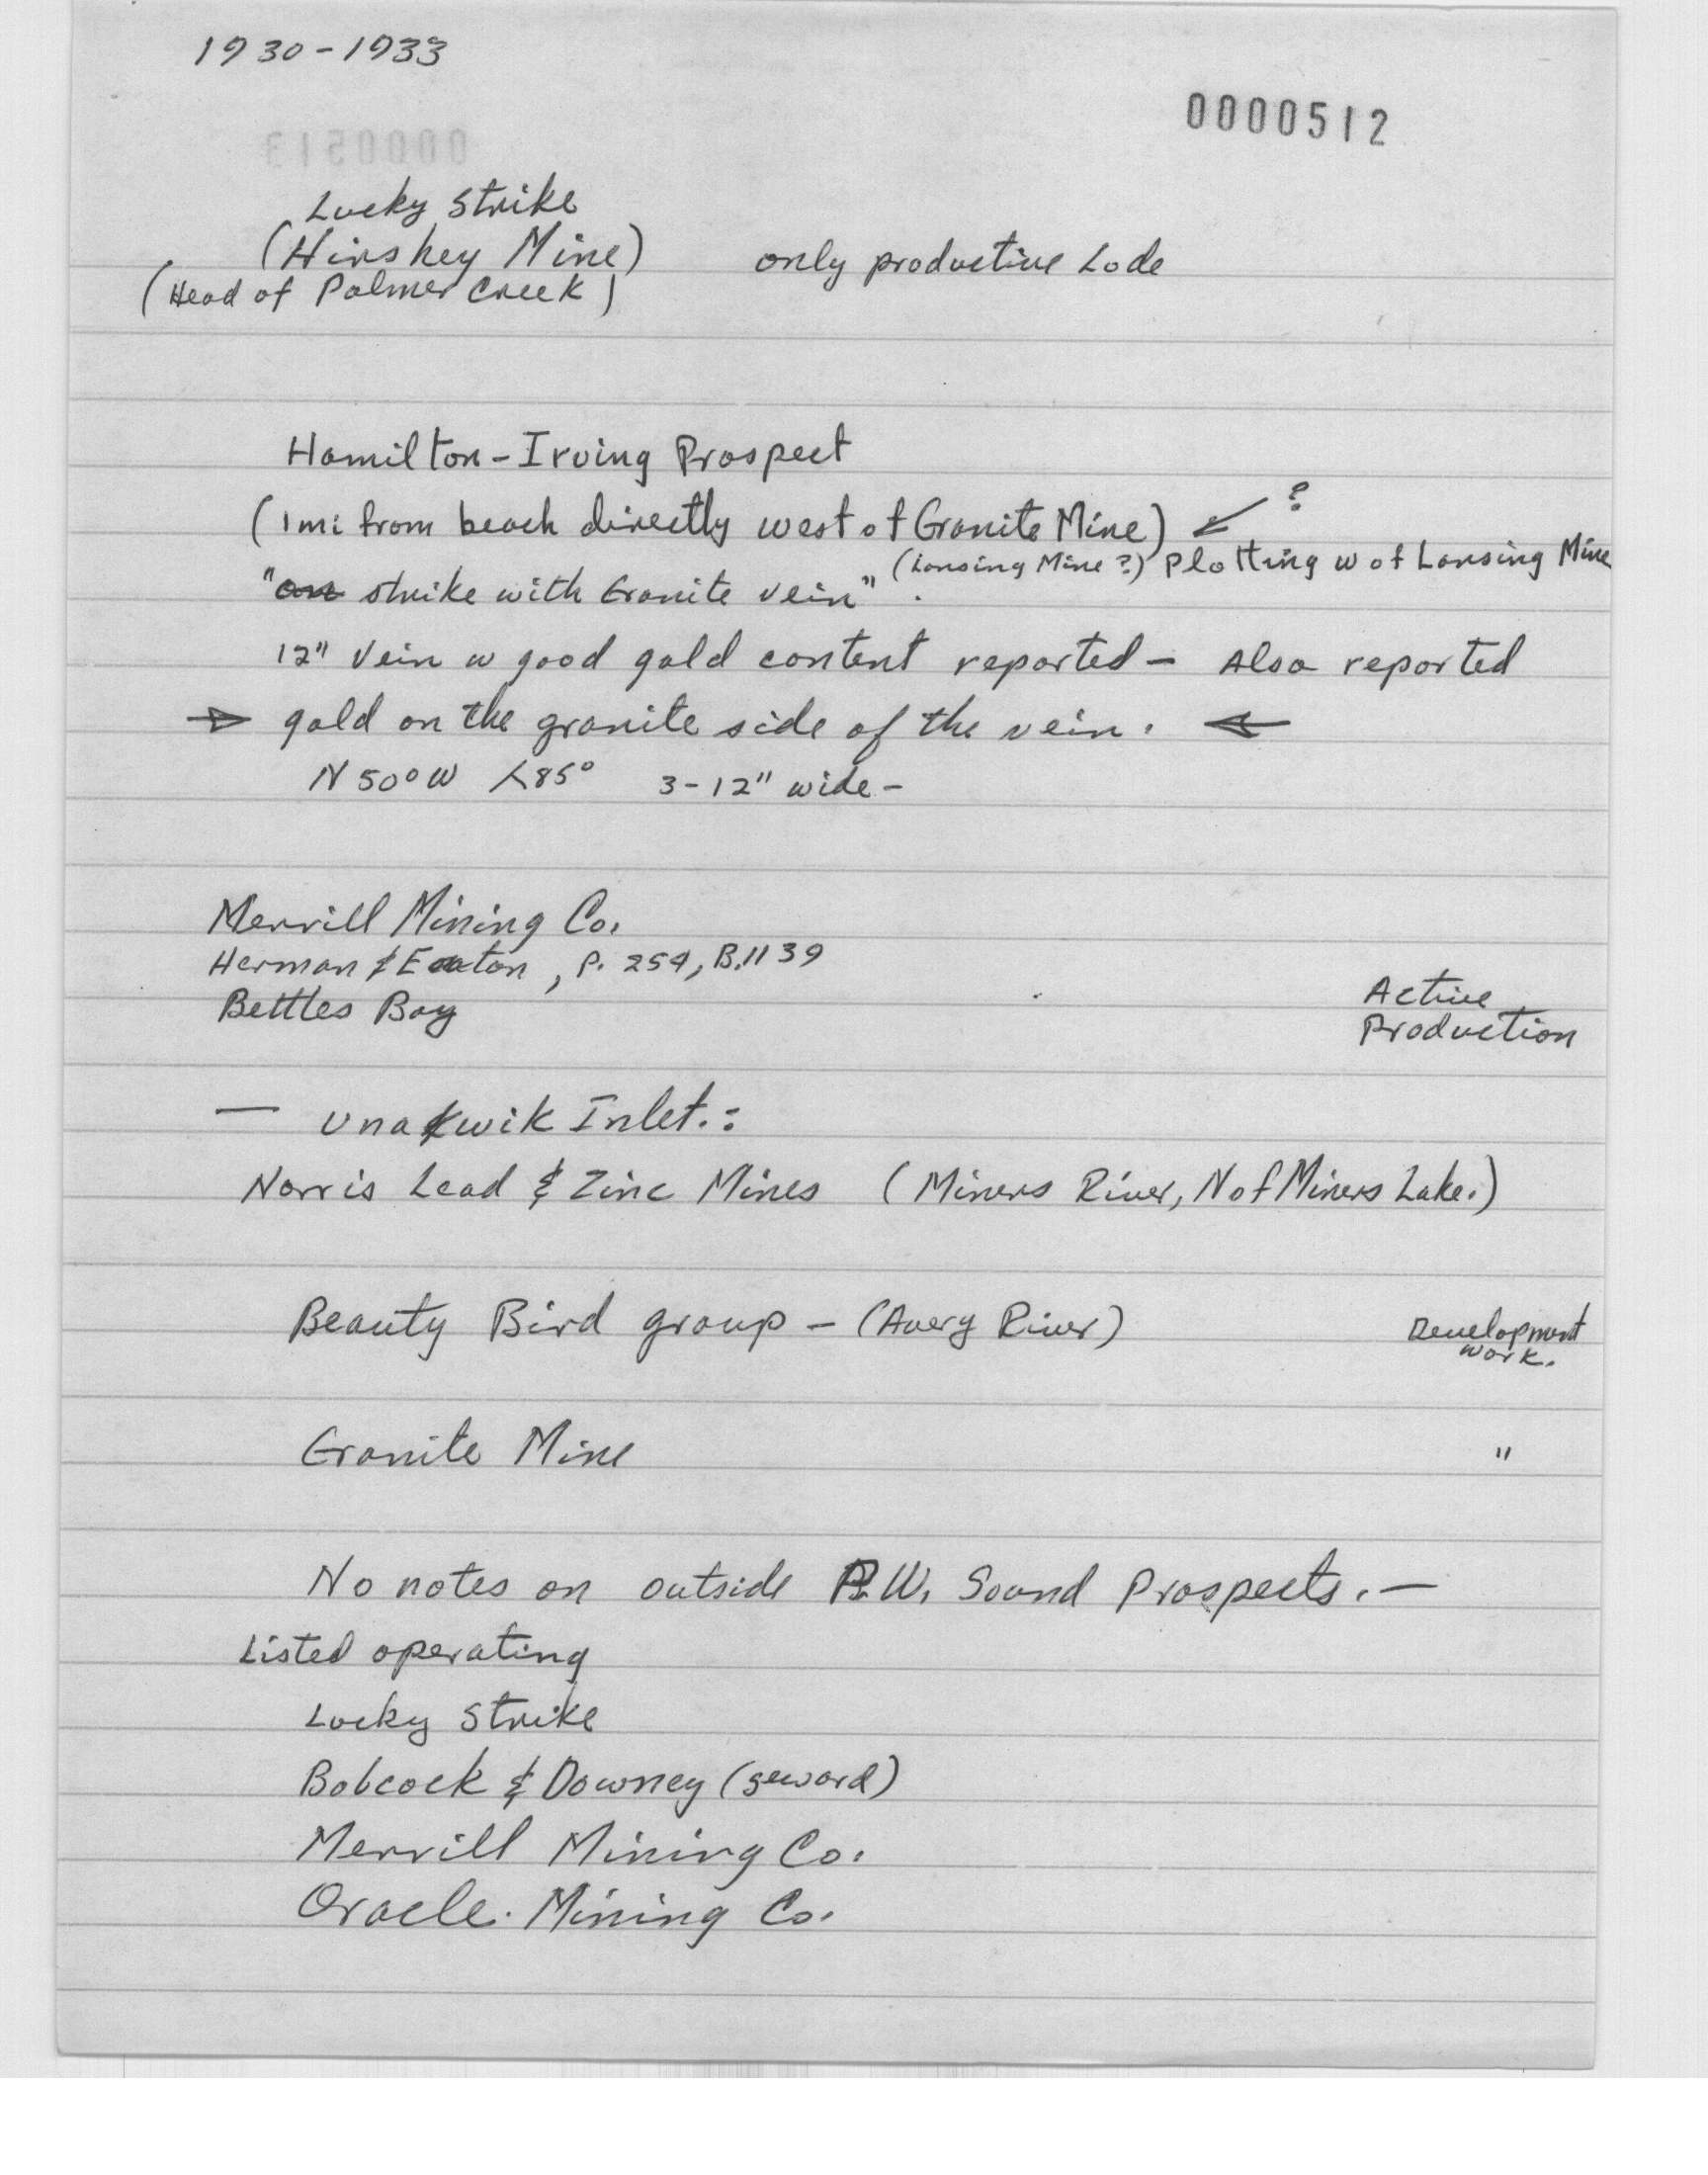 1930-1933
0000512
0000513
Lucky Strike
(Hirshey Mine) only productive Lode
(Head of Palmer Creek)
Hamilton-Irving Prospect
(1mi from beach directly west of Granite Mine) ↙ ?
(Lansing Mine?) Plotting w of Lansing Mine
"on strike with Granite vein".
12" Vein w good gold content reported - Also reported
→ gold on the granite side of the vein. ←
N 50° W ∠85° 3-12" wide -
Merrill Mining Co.
Herman & Eaton, P. 254, B.1139
Bettles Bay
Active
Production
— Unakwik Inlet.:
Norris Lead & Zinc Mines (Miners River, N of Miners Lake.)
Beauty Bird group - (Avery River) Development
work.
Granite Mine "
No notes on outside P.W. Sound Prospects. —
Listed operating
Lucky Strike
Babcock & Downey (Seward)
Merrill Mining Co.
Oracle Mining Co.